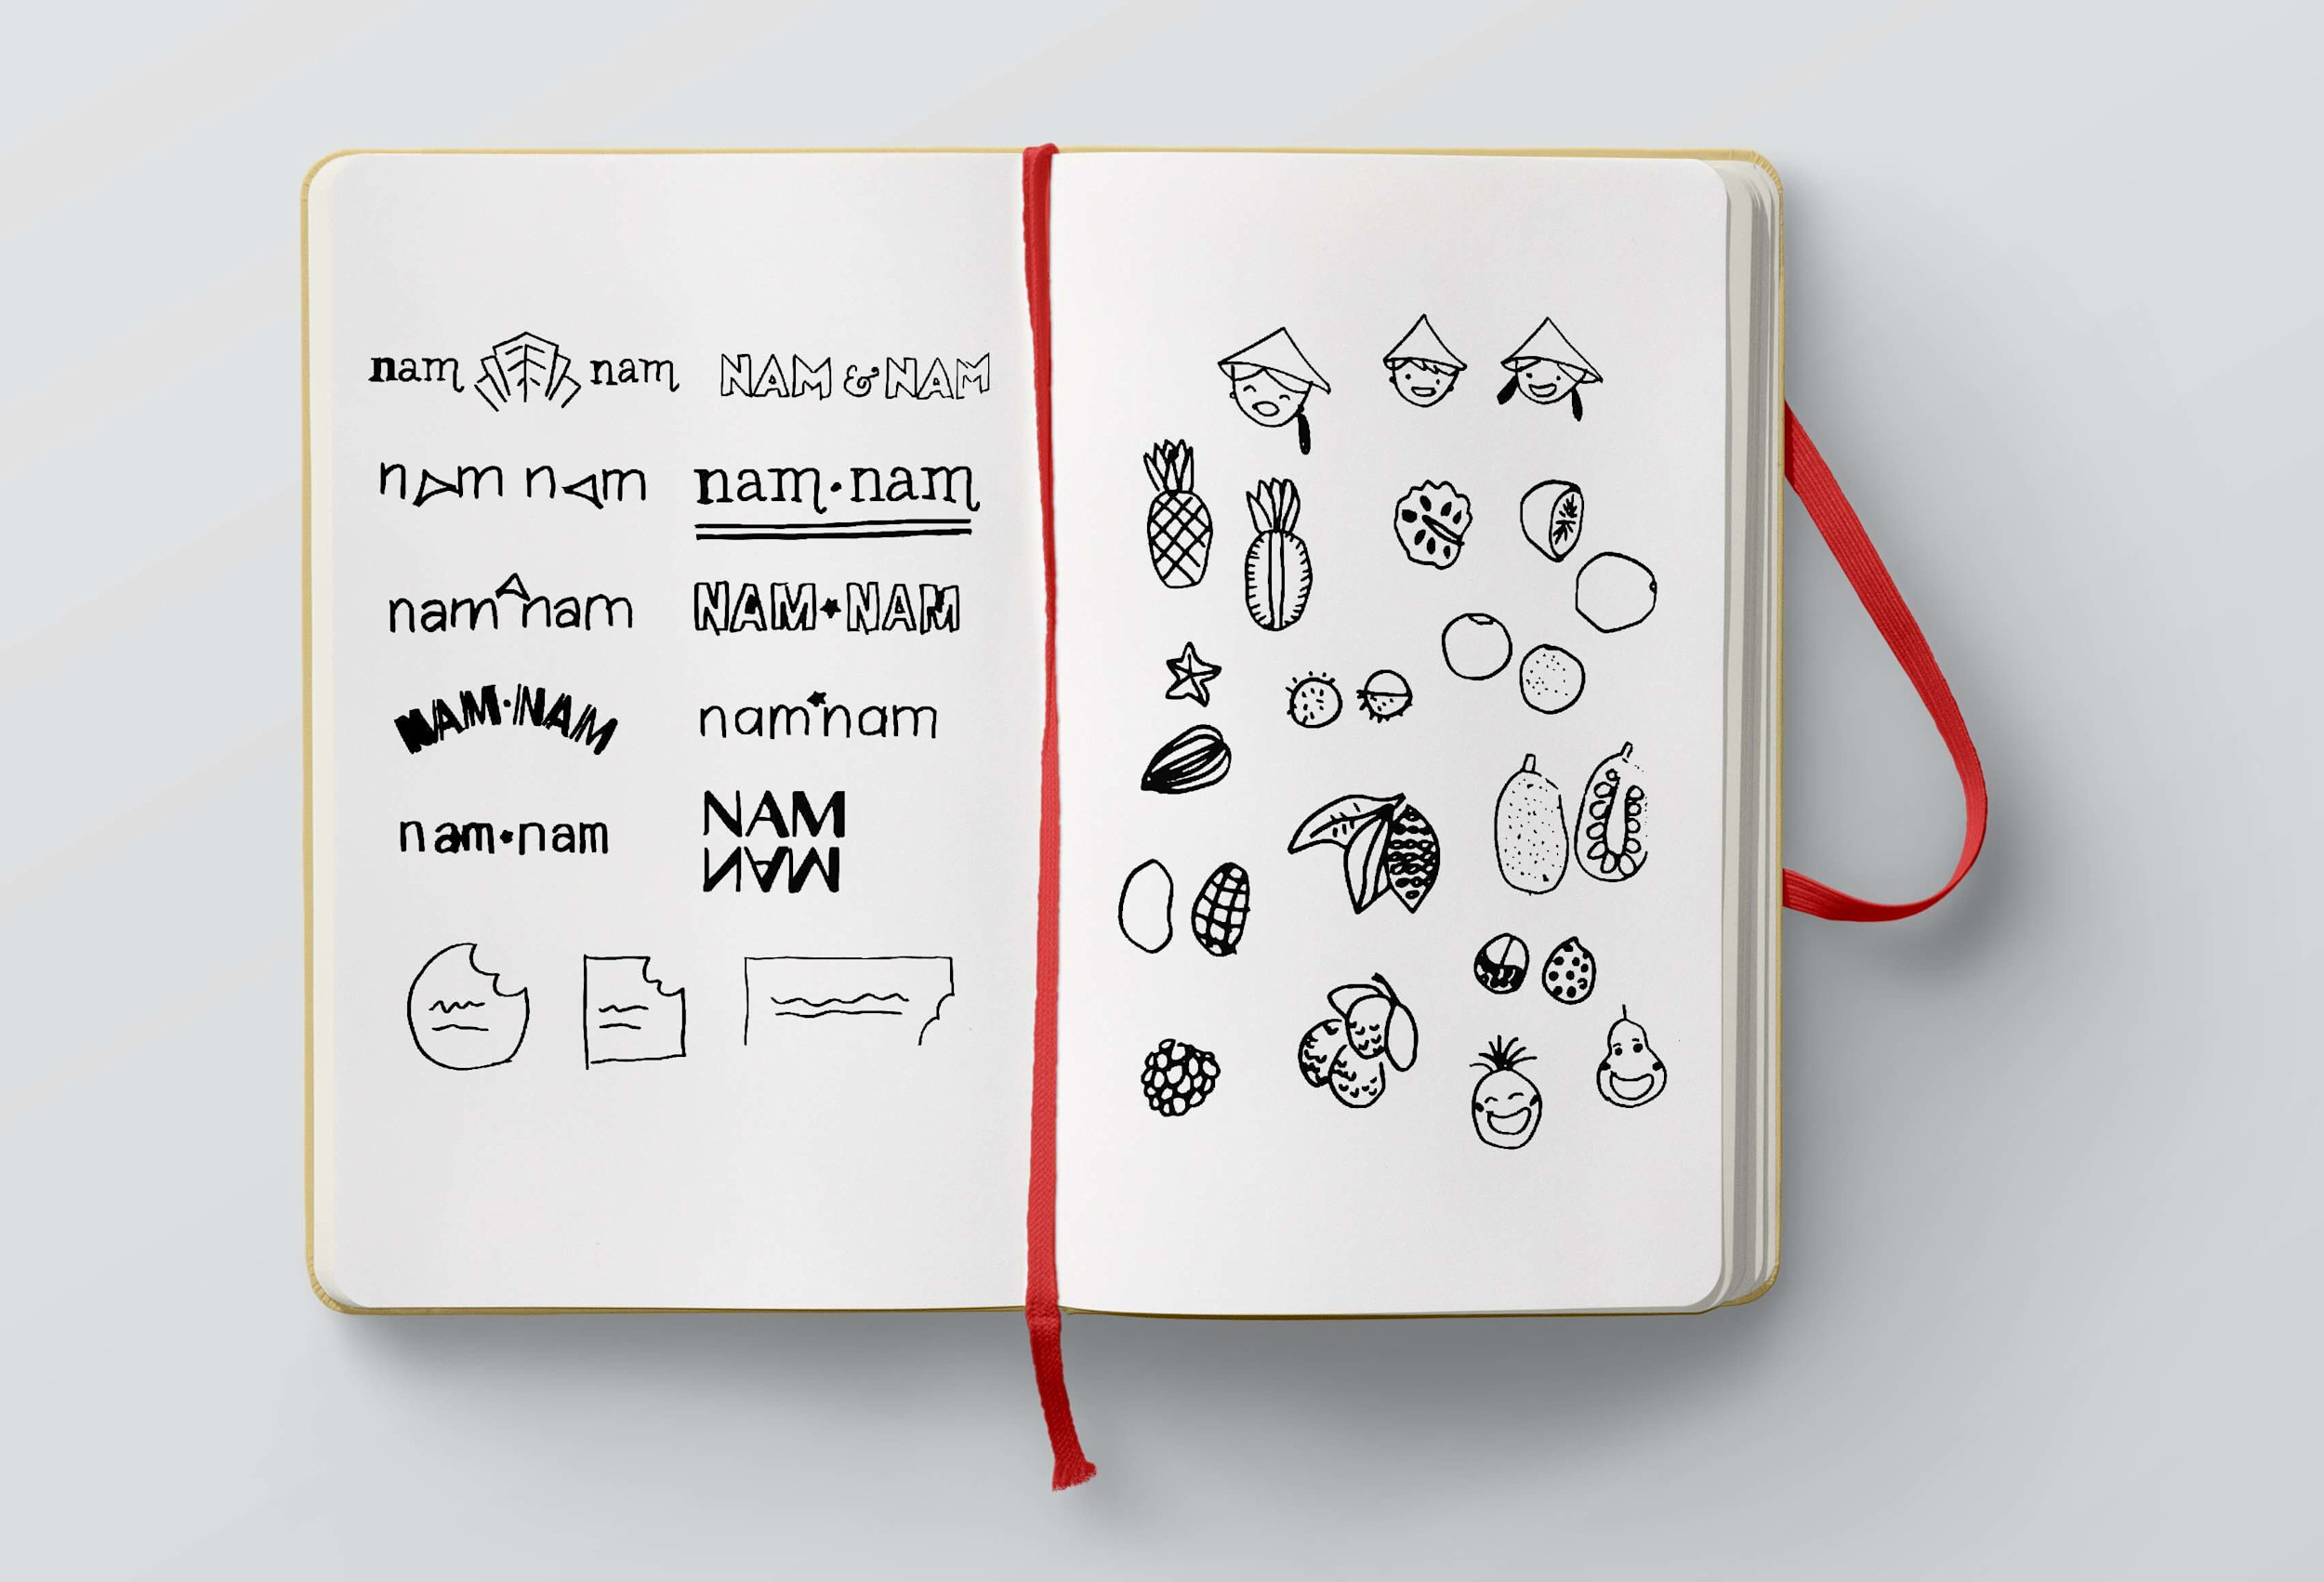 nam nam
NAM & NAM
nam nam
nam·nam
nam nam
NAM★NAM
NAM·NAM
nam★nam
nam•nam
NAM
NAM